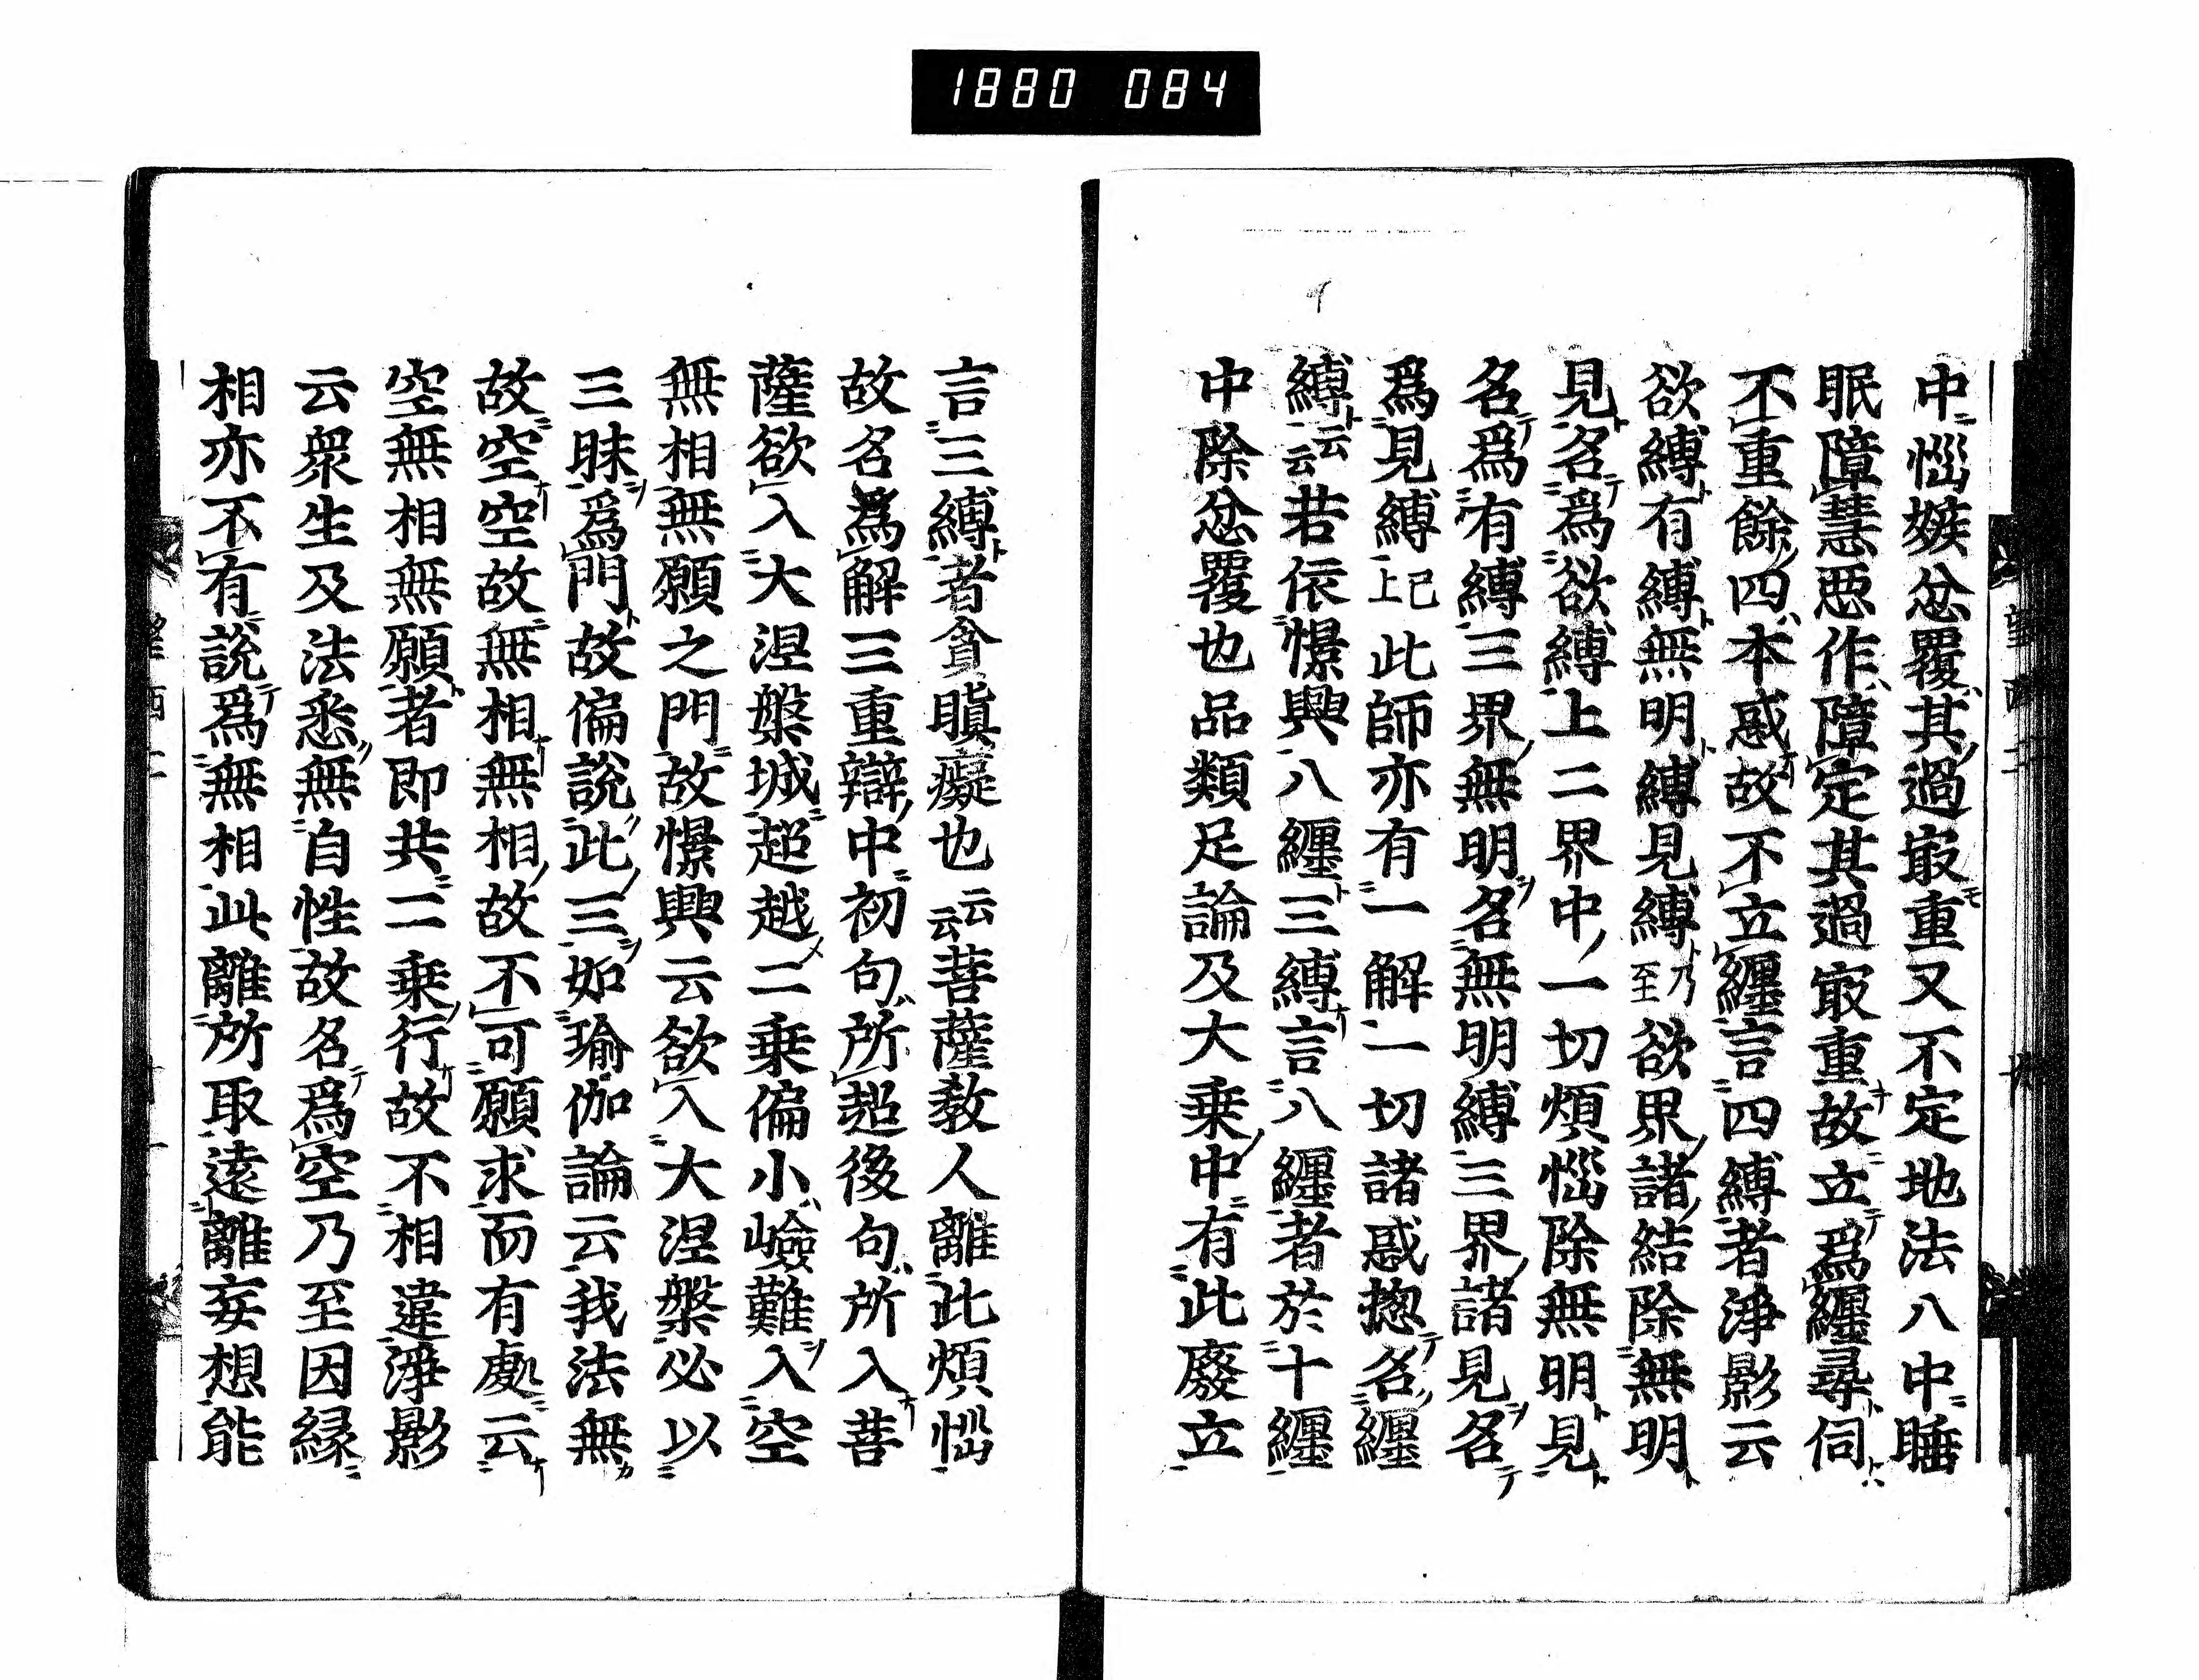 1880 084
中惱嫉忿覆其過㝡重又不定地法八中睡
眠障慧惡作障定其過㝡重故立爲纒尋伺
不重餘四本惑故不立纒言四縛者淨影云
欲縛有縛無明縛見縛乃至欲界諸結除無明
見名爲欲縛上二界中一切煩惱除無明見
名爲有縛三界無明名無明縛三界諸見名
爲見縛已上此師亦有一解一切諸惑揔名纒
縛云云若依憬興八纒三縛言八纒者於十纒
中除忿覆也品類足論及大乗中有此廢立
言三縛者貪瞋癡也云云菩薩教人離此煩惱
故名爲解三重辯中初句所超後句所入菩
薩欲入大涅槃城超越二乗偏小嶮難入空
無相無願之門故憬興云欲入大涅槃必以
三昧爲門故偏說此三如瑜伽論云我法無
故空空故無相無相故不可願求而有處云
空無相無願者即共二乗行故不相違淨影
云衆生及法悉無自性故名爲空乃至因縁
相亦不有說爲無相此離所取遠離妄想能